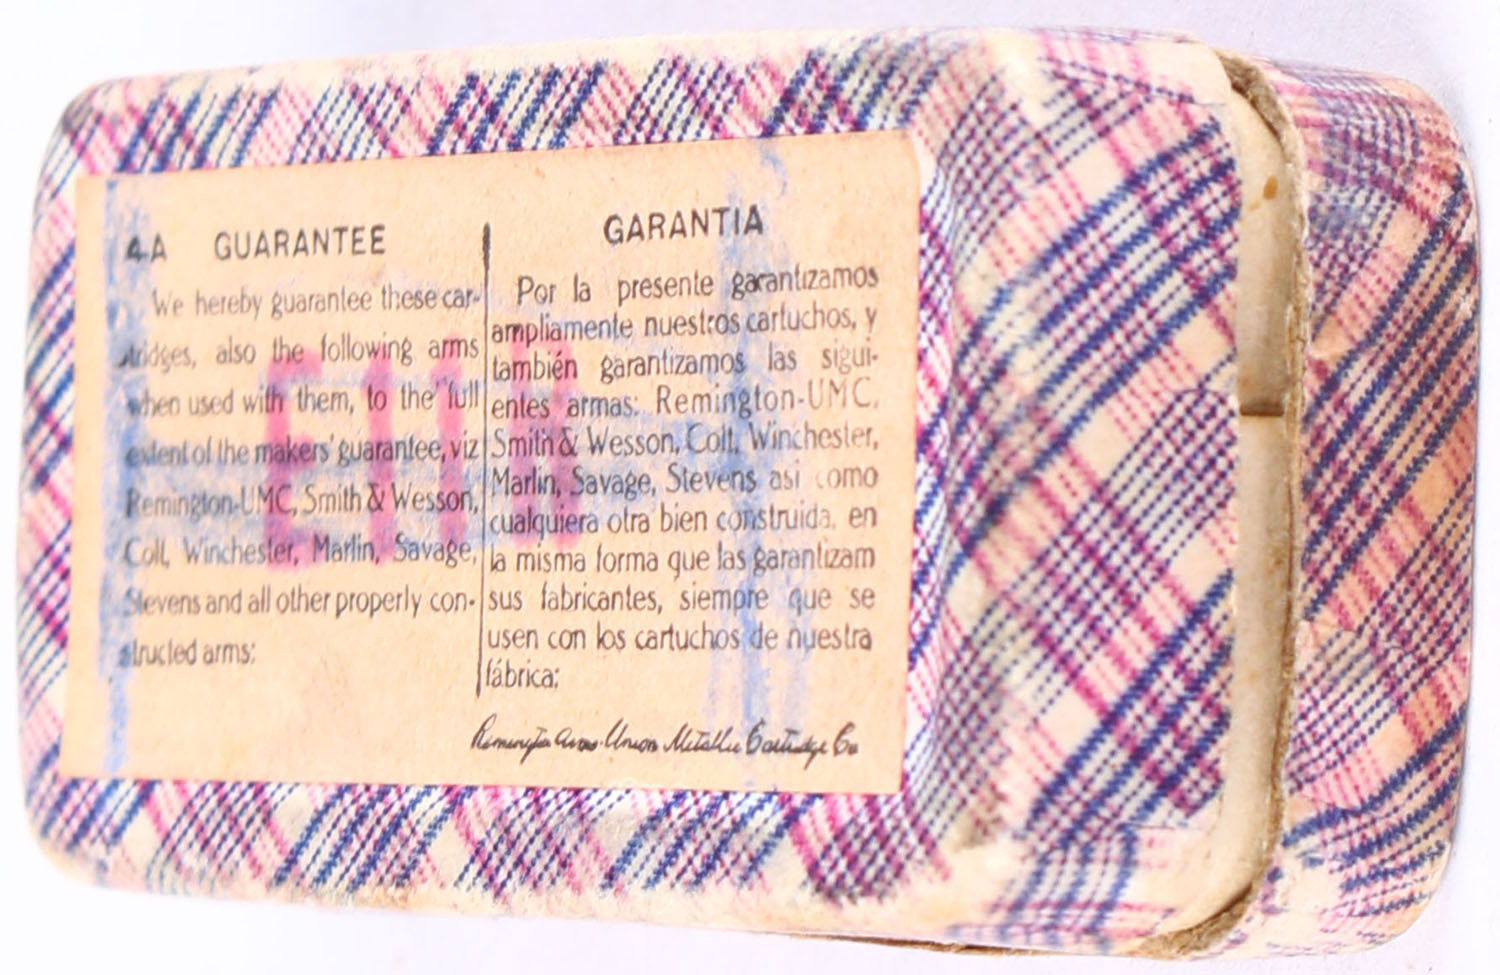 4A GUARANTEE
We hereby guarantee these car-
tridges, also the following arms
when used with them, to the full
extent of the makers' guarantee, viz
Remington-UMC, Smith & Wesson,
Colt, Winchester, Marlin, Savage,
Stevens and all other properly con-
structed arms:
GARANTIA
Por la presente garantizamos
ampliamente nuestros cartuchos, y
también garantizamos las sigui-
entes armas: Remington-UMC,
Smith & Wesson, Colt, Winchester,
Marlin, Savage, Stevens asi como
cualquiera otra bien construida, en
la misma forma que las garantizam
sus fabricantes, siempre que se
usen con los cartuchos de nuestra
fábrica:
Remington Arms-Union Metallic Cartridge Co